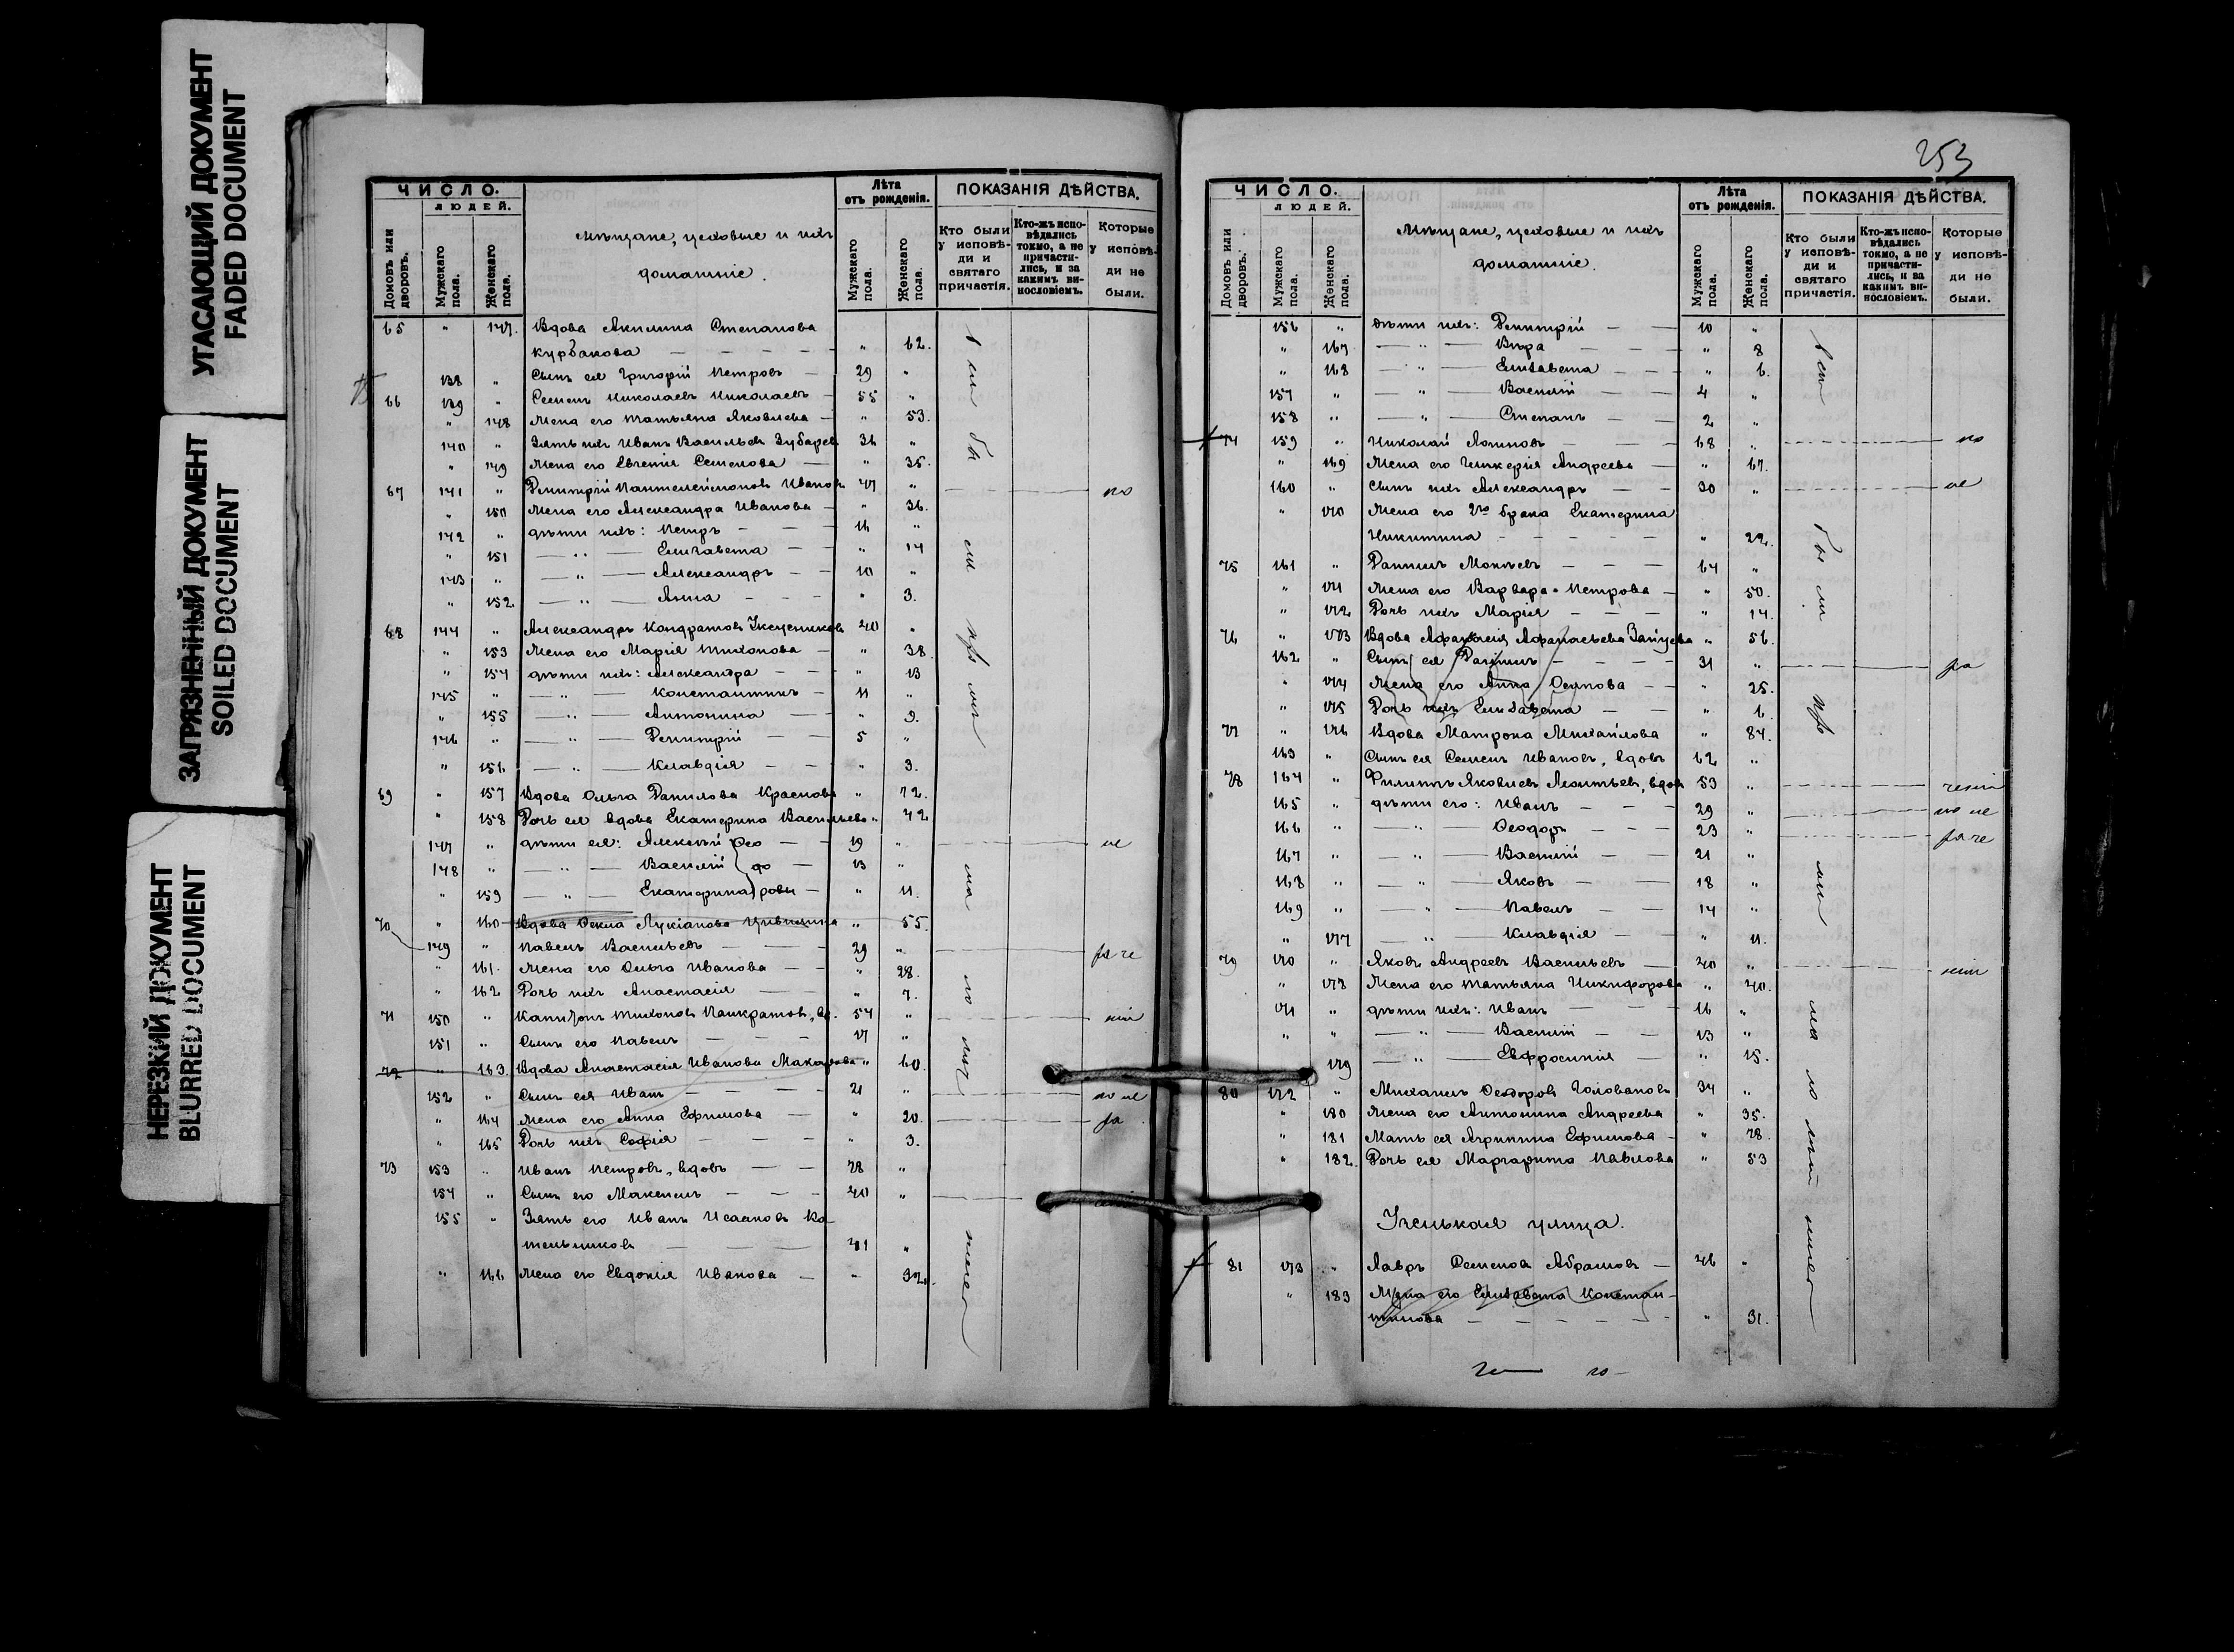 УГАСАЮЩИЙ ДОКУМЕНТ
FADED DOCUMENT
ЗАГРЯЗНЕННЫЙ ДОКУМЕНТ
SOILED DOCUMENT
НЕРЕЗКИЙ ДОКУМЕНТ
BLURRED DOCUMENT
ЧИСЛО.
людей.
Домовъ или дворовъ.
Мужскаго пола.
Женскаго пола.
Мѣщане, цеховые и ихъ
домашніе.
Лѣта отъ рожденія.
Мужскаго пола.
Женскаго пола.
ПОКАЗАНІЯ ДѢЙСТВА.
Кто были у исповѣди и святаго причастія.
Кто-жъ исповѣдались токмо, а не причастились, и за какимъ винословіемъ.
Которые у исповѣди не были.
65 " 147. Вдова Акилина Степанова
Курбакова " 62.
138 " Сынъ ея Григорій Петровъ 29 "
66 139 " Семенъ Николаевъ Николаевъ 55 "
" 148 Жена его Татьяна Яковлева " 53.
140 " Зять ихъ Иванъ Васильевъ Зубаревъ 36 "
" 149 Жена его Евгенія Семенова " 35.
67 141 " Димитрій Пантелеймоновъ Ивановъ 47 "
" 150 Жена его Александра Иванова " 36.
142 " дѣти ихъ: Петръ 16 "
" 151 Елизавета " 14
143 " Александръ 10 "
" 152. Анна " 3.
68 144 " Александръ Кондратовъ 40 "
" 153 Жена его Марія Тихонова " 38.
" 154 дѣти ихъ: Александра " 13
145 " Константинъ 11 "
" 155 Антонина " 9.
146 " Димитрій 5 "
" 156 Клавдія " 3.
69 " 157 Вдова Ольга Данилова Краснова " 72.
" 158 Дочь ея вдова Екатерина Васильева " 42
147 " дѣти ея: Алексѣй Ѳео 19 "
148 " Василій до 13 "
" 159 Екатерина ровы " 11.
70 " 160 Вдова Ѳекла Лукіанова " 55.
149 " Павелъ Васильевъ 29 "
" 161. Жена его Ольга Иванова " 28.
" 162 Дочь ихъ Анастасія " 7.
71 150 " Капитонъ Тихоновъ Панкратовъ, вд. 54 "
151 " Сынъ его Павелъ 17 "
72 " 163. Вдова Анастасія Иванова Макарова " 60.
152 " Сынъ ея Иванъ 21 "
" 164 Жена его Анна Ефимова " 20.
" 165 Дочь ихъ Софія " 3.
73 153 " Иванъ Петровъ, вдовъ 78 "
154 " Сынъ его Максимъ 40 "
155 " Зять его Иванъ Исааковъ Ко-
тельниковъ 41 "
" 166 Жена его Евдокія Иванова " 32.
253
ЧИСЛО.
людей.
Домовъ или дворовъ.
Мужскаго пола.
Женскаго пола.
Мѣщане, цеховые и ихъ
домашніе.
Лѣта отъ рожденія.
Мужскаго пола.
Женскаго пола.
ПОКАЗАНІЯ ДѢЙСТВА.
Кто были у исповѣди и святаго причастія.
Кто-жъ исповѣдались токмо, а не причастились, и за какимъ винословіемъ.
Которые у исповѣди не были.
156 " дѣти ихъ: Димитрій 10 "
" 167 Вѣра " 8
" 168 Елизавета " 6.
157 " Василій 4 "
158 " Степанъ 2 "
74 159 " Николай Логиновъ 68 "
" 169 Жена его Гликерія Андреева " 67.
160 " Сынъ ихъ Александръ 30 "
" 170 Жена его 2го брака Екатерина
Никитина " 22.
75 161 " Даниилъ Мокѣевъ 64 "
" 171 Жена его Варвара Петрова " 50.
" 172 Дочь ихъ Марія " 14.
76 " 173 Вдова Аѳанасія Аѳанасьева Зайцева " 56.
162 " Сынъ ея Даніилъ 31 "
" 174 Жена его Анна Осипова " 25.
" 175 Дочь ихъ Елизавета " 6.
77 " 176 Вдова Матрона Михайлова " 84.
163 " Сынъ ея Семенъ Ивановъ, вдовъ 62 "
78 164 " Филиппъ Яковлевъ Леонтьевъ, вдовъ 53 "
165 " дѣти его: Иванъ 29 "
166 " Ѳеодоръ 23 "
167 " Василій 21 "
168 " Яковъ 18 "
169 " Павелъ 14 "
" 177 Клавдія " 11.
79 170 " Яковъ Андреевъ Васильевъ 40 "
" 178 Жена его Татьяна Никифорова " 40.
171 " дѣти ихъ: Иванъ 16 "
" " Василій 13 "
179 Евфросинія " 15.
80 172 " Михаилъ Ѳеодоровъ Головановъ 34 "
" 180 Жена его Антонина Андреева " 35.
" 181 Мать ея Агрипина Ефимова " 78.
" 182. Дочь ея Маргарита Павлова " 53
улица.
81 173 " Лавръ Семеновъ Абрамовъ 46 "
" 183 Жена его Елизавета Констан-
тинова " 31.